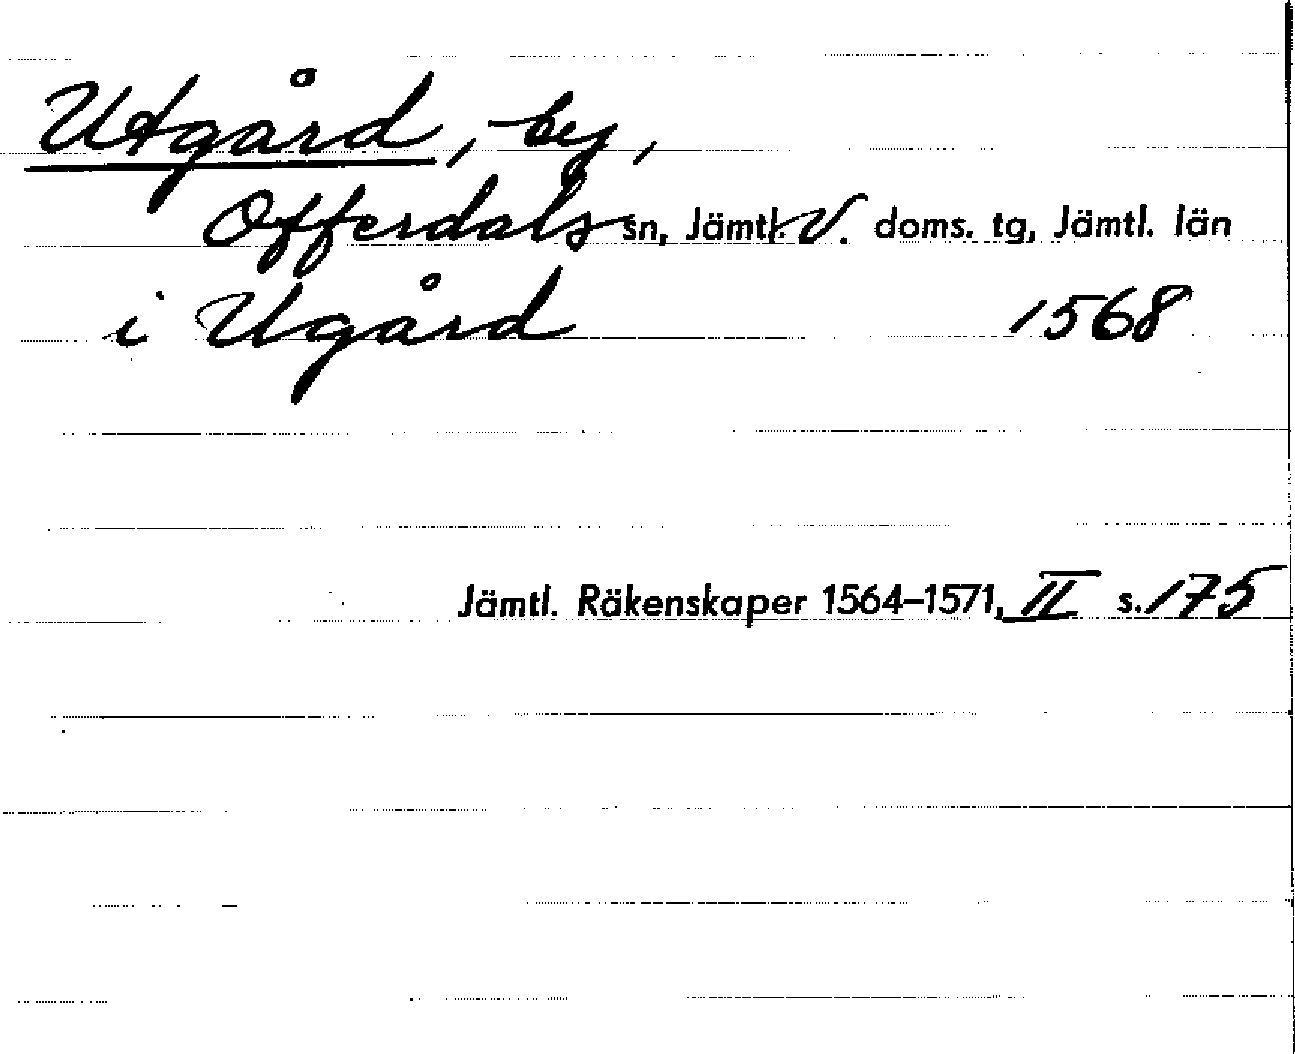 Utgård, by,
Offerdals sn, Jämtl. V. doms. tg, Jämtl. län
i Ugård 1568
Jämtl. Räkenskaper 1564–1571, II s. 175